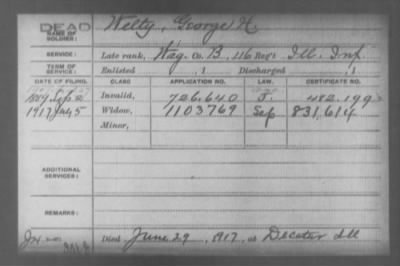 DEAD
NAME OF SOLDIER: Welty, George H.
SERVICE: Late rank, Wag. Co. B, 116 Reg't Ill. Inf.
TERM OF SERVICE: Enlisted , 1 Discharged , 1
DATE OF FILING. CLASS. APPLICATION NO. LAW. CERTIFICATE NO.
Invalid, 726.640 J. 482.199
1917 July 5 Widow, 1103769 Sep 831,614
Minor,
ADDITIONAL SERVICES:
REMARKS:
Died June 29, 1917, at Decatur Ill